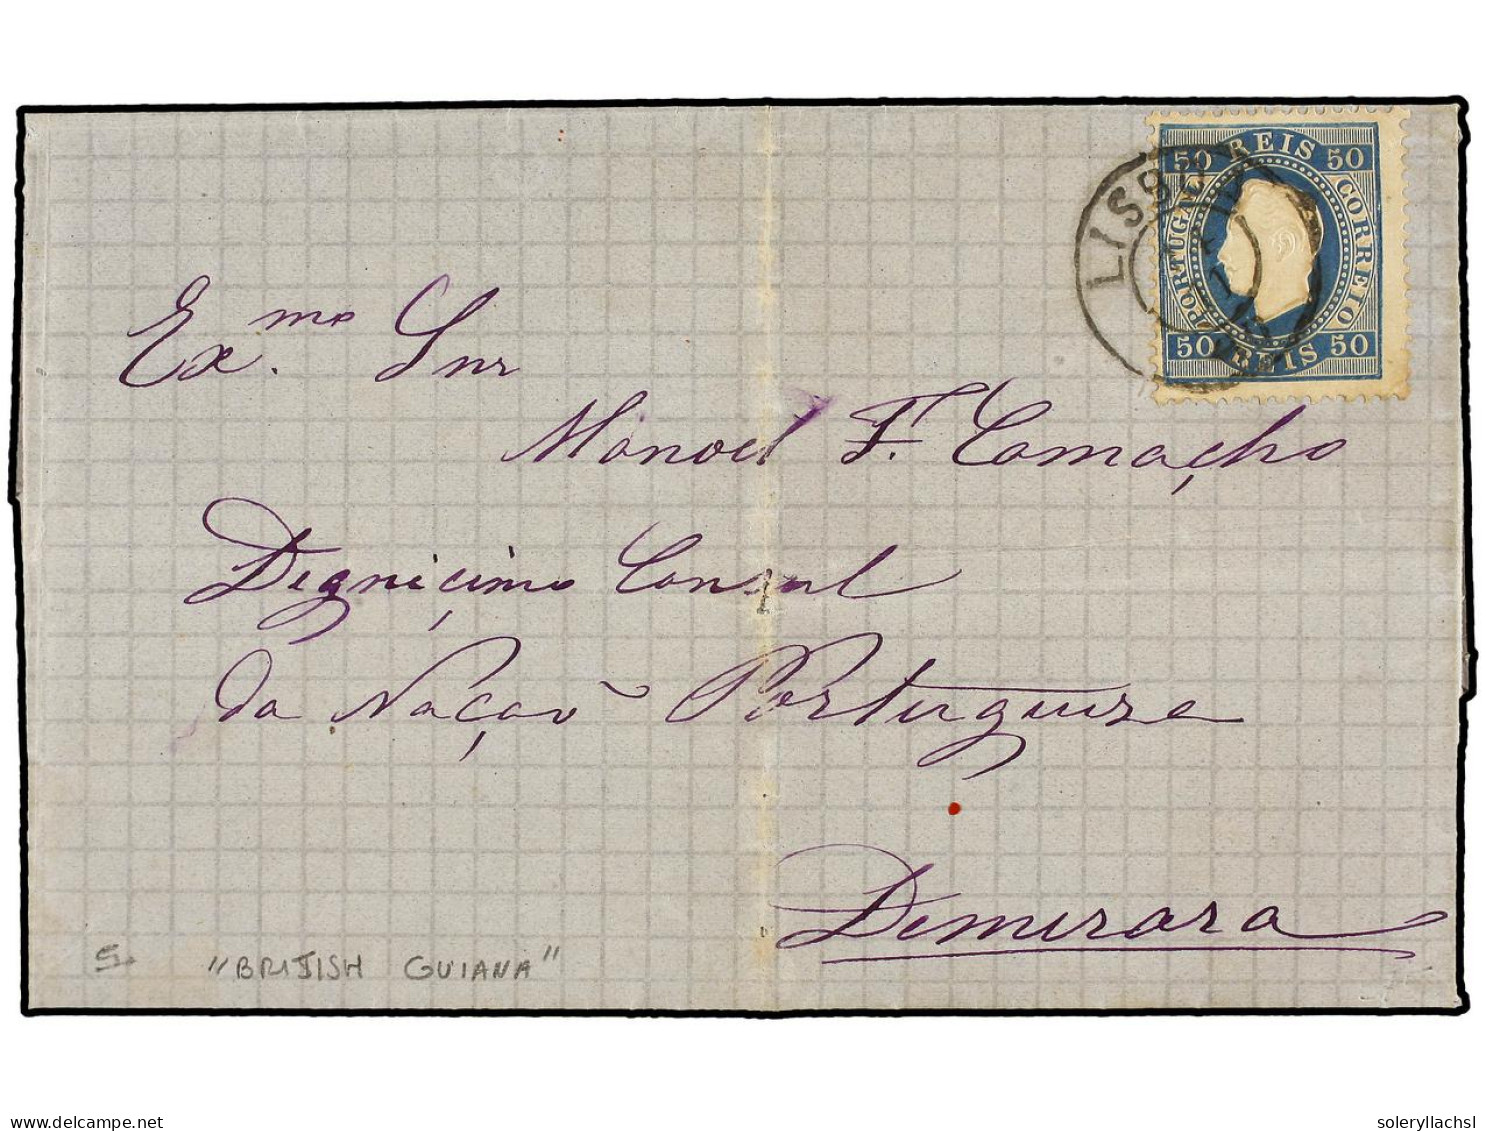 50 REIS 50
PORTUGAL
CORREIO
50 REIS 50
LISBO
Ex.mo Snr
Manoel F. Camacho
Digniçimo Consul
da Nação Portugueza
Dimerara
"BRITISH GUIANA"
delcampe.net
soleryllachsl